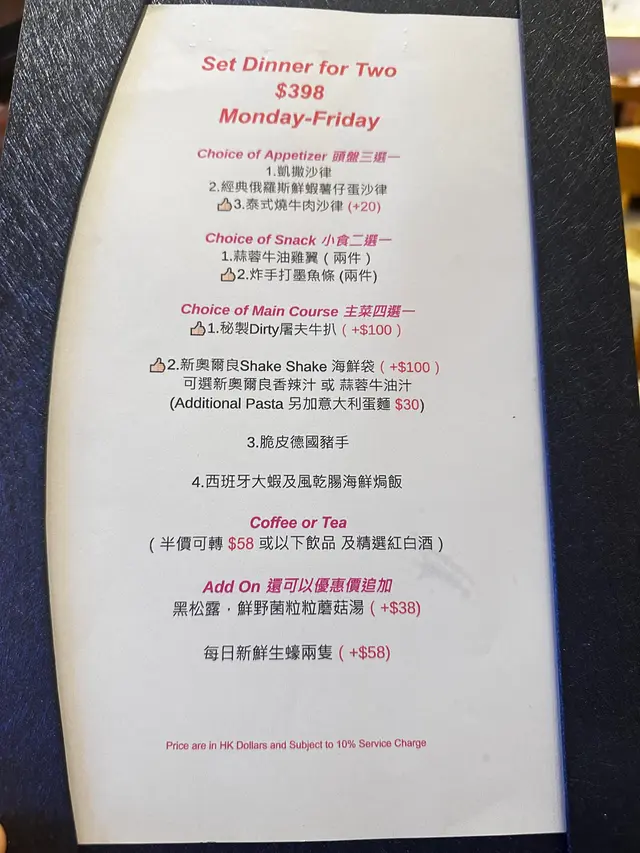 Set Dinner for Two
$398
Monday-Friday
Choice of Appetizer 頭盤三選一
1.凱撒沙律
2.經典俄羅斯鮮蝦薯仔蛋沙律
👍3.泰式燒牛肉沙律 (+20)
Choice of Snack 小食二選一
1.蒜蓉牛油雞翼 ( 兩件 )
👍2.炸手打墨魚條 (兩件)
Choice of Main Course 主菜四選一
👍1.秘製Dirty屠夫牛扒 ( +$100 )
👍2.新奧爾良Shake Shake 海鮮袋 ( +$100 )
可選新奧爾良香辣汁 或 蒜蓉牛油汁
(Additional Pasta 另加意大利蛋麵 $30)
3.脆皮德國豬手
4.西班牙大蝦及風乾腸海鮮焗飯
Coffee or Tea
( 半價可轉 $58 或以下飲品 及精選紅白酒 )
Add On 還可以優惠價追加
黑松露，鮮野菌粒粒蘑菇湯 ( +$38)
每日新鮮生蠔兩隻 ( +$58)
Price are in HK Dollars and Subject to 10% Service Charge